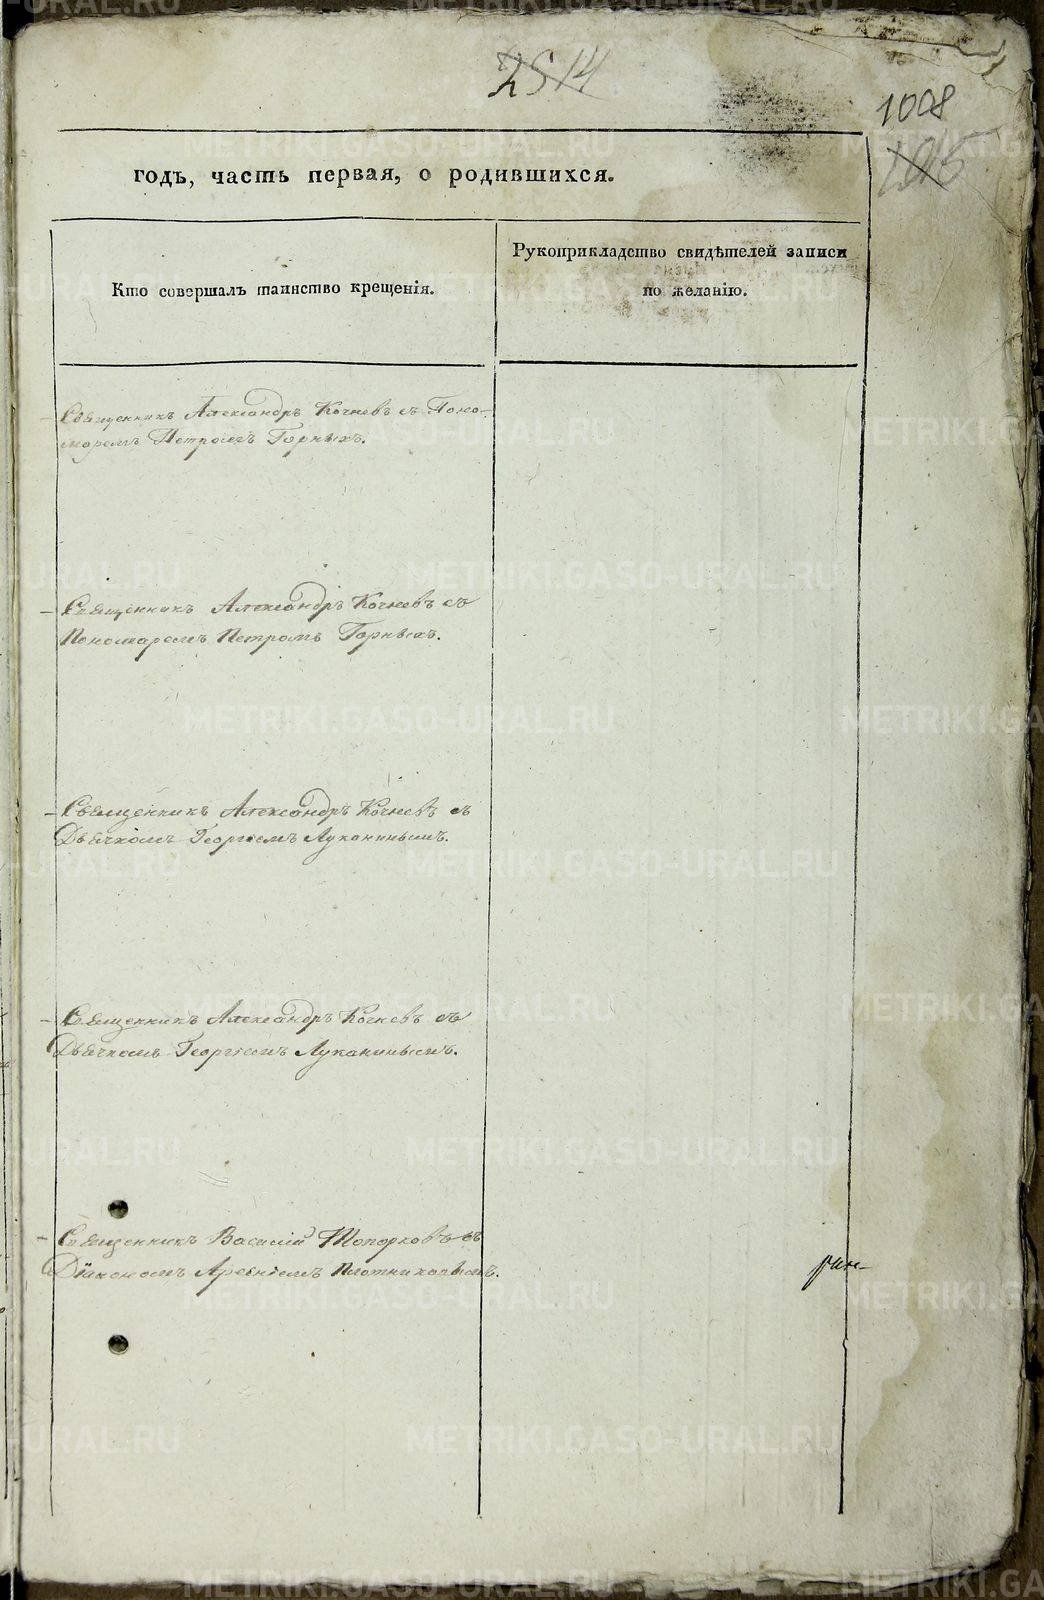 2514
1008
1015
годъ, часть первая, о родившихся.
Кто совершалъ таинство крещенія.
Рукоприкладство свидѣтелей записи
по желанію.
Священникъ Александръ Кочневъ съ Поно-
маремъ Петромъ Горныхъ.
Священникъ Александръ Кочневъ съ
Пономаремъ Петромъ Горныхъ.
Священникъ Александръ Кочневъ съ
Дьячкомъ Георгіемъ Луканинымъ.
Священникъ Александръ Кочневъ съ
Дьячкомъ Георгіемъ Луканинымъ.
Священникъ Василій Топорковъ съ
Діакономъ Арсеніемъ Плотниковымъ.
METRIKI.GASO-URAL.RU